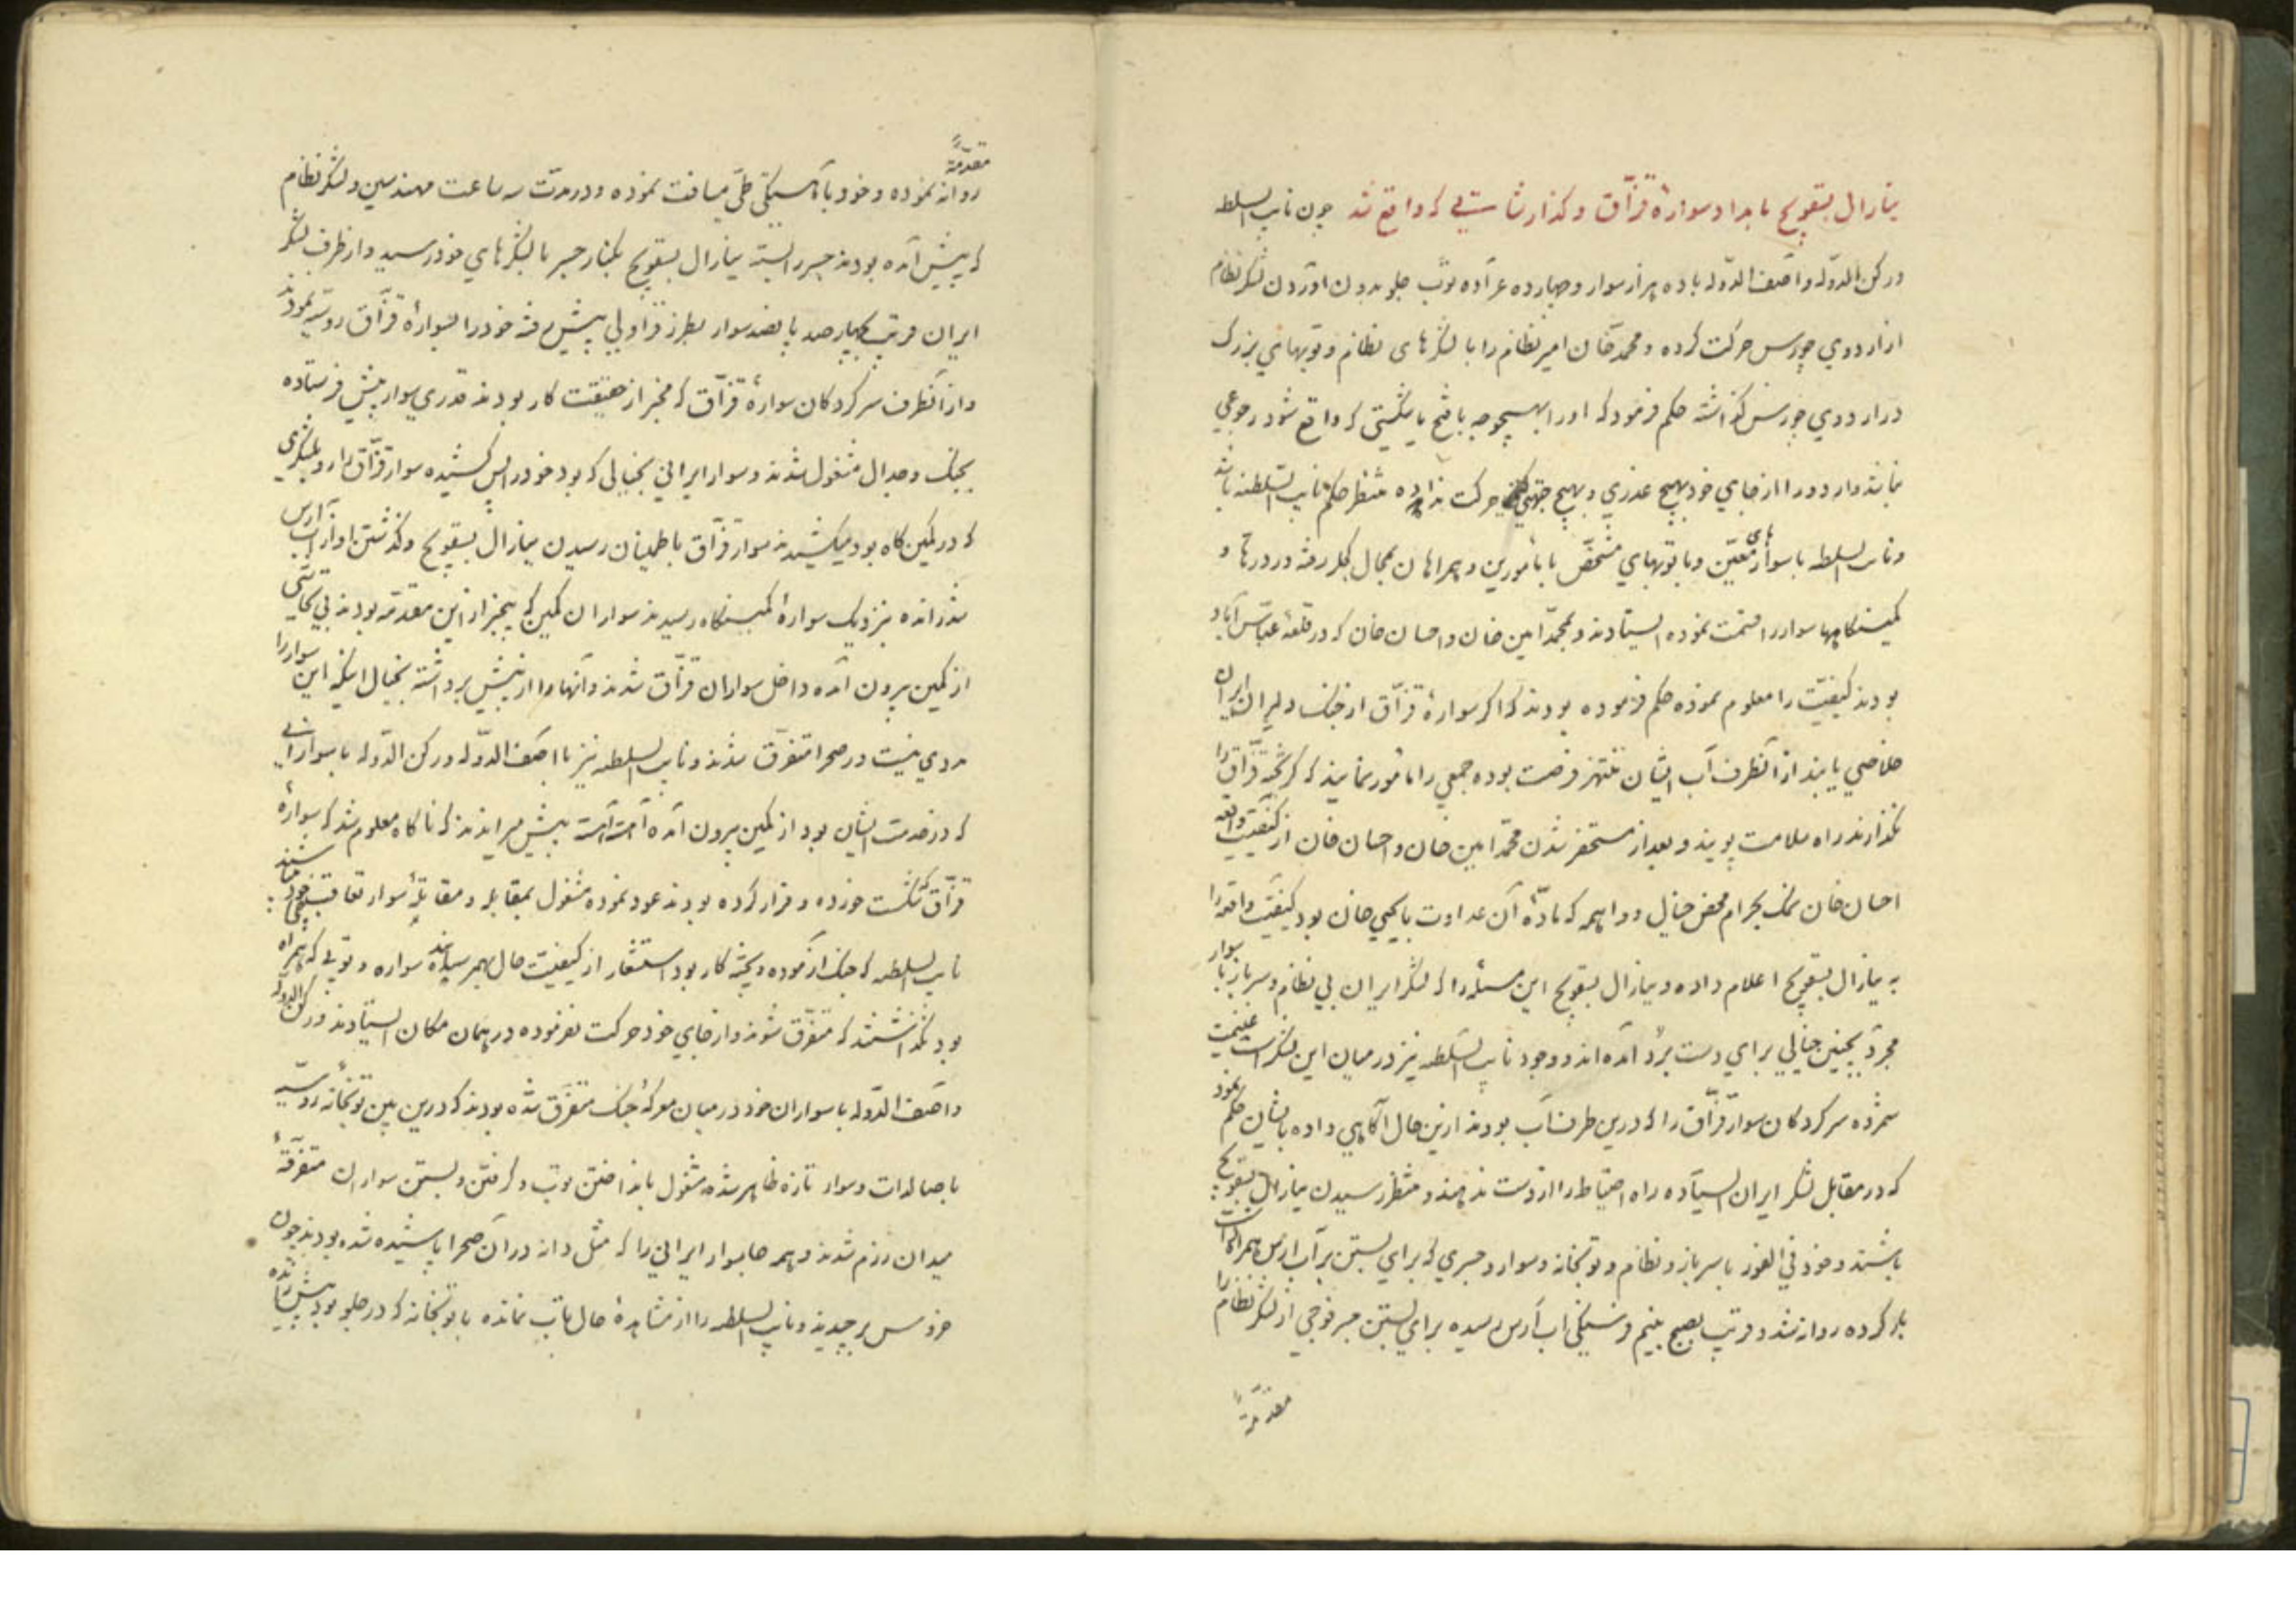 ینارال بسقویچ بامداد سوارهٔ قزّاق و گذارشاتیکه واقع شد چون نایب السلطنه
و رکن الدوله و آصف الدوله با ده هزار سوار و چهارده عرّاده توپ جلو بدون آوردن لشکر نظام
از اردوی چورس حرکت کرده و محمد خان امیر نظام را با لشکرهای نظام و توپهای بزرک
در اردوی چورس گذاشته حکم فرمود که او را بهیچوجه با فتح یا شکستی که واقع شود رجوعی
نباشد و اردو را از جای خود بهیچ عذری و بهیچ جهتی حرکت نداده منتظر حکم نایب السلطنه باشد
و نایب السلطنه با سوارهای معیّن و با توپهای مشخّص با مأمورین و همراهان بمجال کلرفته و در درّها و
کمینکاهها سوار را قسمت نموده ایستادند و محمّد امین خان و احسان خان که در قلعهٔ عبّاس آباد
بودند کیفیّت را معلوم نموده حکم فرموده بودند که اکر سوارهٔ قزّاق از جنک دلیران ایران
خلاصی یابند از آنطرف آب ایشان منتهز فرصت بوده جمعی را مأمور نمایند که کریختهٔ قزّاق را
نکذارند راه سلامت پویند و بعد از مستحضر شدن محمّد امین خان و احسان خان از کیفیّت واقعه
احسان خان نمک بحرام محض خیال و واهمه که مادّهٔ آن عداوت با یحیی خان بود کیفیّت واقعه را
به ینارال بسقویچ اعلام داده و ینارال بسقویچ این مسئله را که لشکر ایران بی نظام و سرباز با سوار
مجرّد بچنین خیالی برای دست برد آمده‌اند و وجود نایب السلطنه نیز در میان این لشکر است غنیمت
شمرده سرکردکان سوار قزّاق را که درین طرف آب بودند ازین حال آکاهی داده بایشان حکم نمود
که در مقابل لشکر ایران ایستاده راه احتیاط را از دست ندهند و منتظر رسیدن ینارال بسقویچ
باشند و خود فی الفور با سرباز و نظام و توپخانه و سوار و جسری که برای بستن بر آب ارس همراه داشت
بار کرده روانه شد و قریب بصبح بنیم فرسنکی آب ارس رسیده برای بستن جسر فوجی از لشکر نظام را
مقدّمةً
مقدّمةً
روانه نموده و خود بآهستکی طیّ مسافت نموده و در مدّت سه ساعت مهندسین و لشکر نظام
که پیش آمده بودند جسر را بسته ینارال بسقویچ بکنار جسر با لشکرهای خود رسید و از طرف لشکر
ایران قریب بچهار صد پانصد سوار بطرز قراولی پیش رفته خود را بسوارهٔ قزّاق روسیّه نمودند
و از آنطرف سرکردکان سوارهٔ قزّاق که مخبر از حقیقت کار بودند قدری سوار پیش فرستاده
بجنک و جدال مشغول شدند و سوار ایرانی بخیالی که بود خود را پس کشیده سوار قزّاق را رو بلشکری
که در کمین کاه بود میکشیدند سوار قزّاق باطمینان رسیدن ینارال بسقویچ و کذشتن او از آب ارس
نزدیک سوارهٔ کمینکاه رسیدند سواران کمین که بیخبر ازین مقدّمه بودند بی تحاشی
از کمین بیرون آمده داخل سواران قزّاق شدند و آنها را از پیش برداشته بخیال اینکه این سوار را
مددی نیست در صحرا متفرّق شدند و نایب السلطنه نیز با آصف الدوله و رکن الدوله با سوارانی
که در خدمت ایشان بود از کمین بیرون آمده آهسته آهسته پیش میراندند که ناکاه معلوم شد که سوارهٔ
قزّاق که شکست خورده و فرار کرده بودند عود نموده مشغول بمقابله و مقاتلهٔ سوار تعاقبچی خود شدند
نایب السلطنه که جنک آزموده و پخته کار بود استفسار از کیفیّت حال بهم رسانده سواره و توپی که همراه
بود نکذاشتند که متفرّق شوند و از جای خود حرکت نفرموده در همان مکان ایستادند و رکن الدوله
و آصف الدوله با سواران خود در میان معرکهٔ جنک متفرّق شده بودند که درین بین توپخانهٔ روسیّه
با صالدات و سوار تازه ظاهر شده مشغول بانداختن توپ و کرفتن و بستن سواران متفرّقهٔ
میدان رزم شدند و همه جا سوار ایرانی را که مثل دانه در آن صحرا پاشیده شده بودند چون
خروس برچیدند و نایب السلطنه را از مشاهدهٔ حال تاب نمانده با توپخانه که در جلو بود پیش رانده